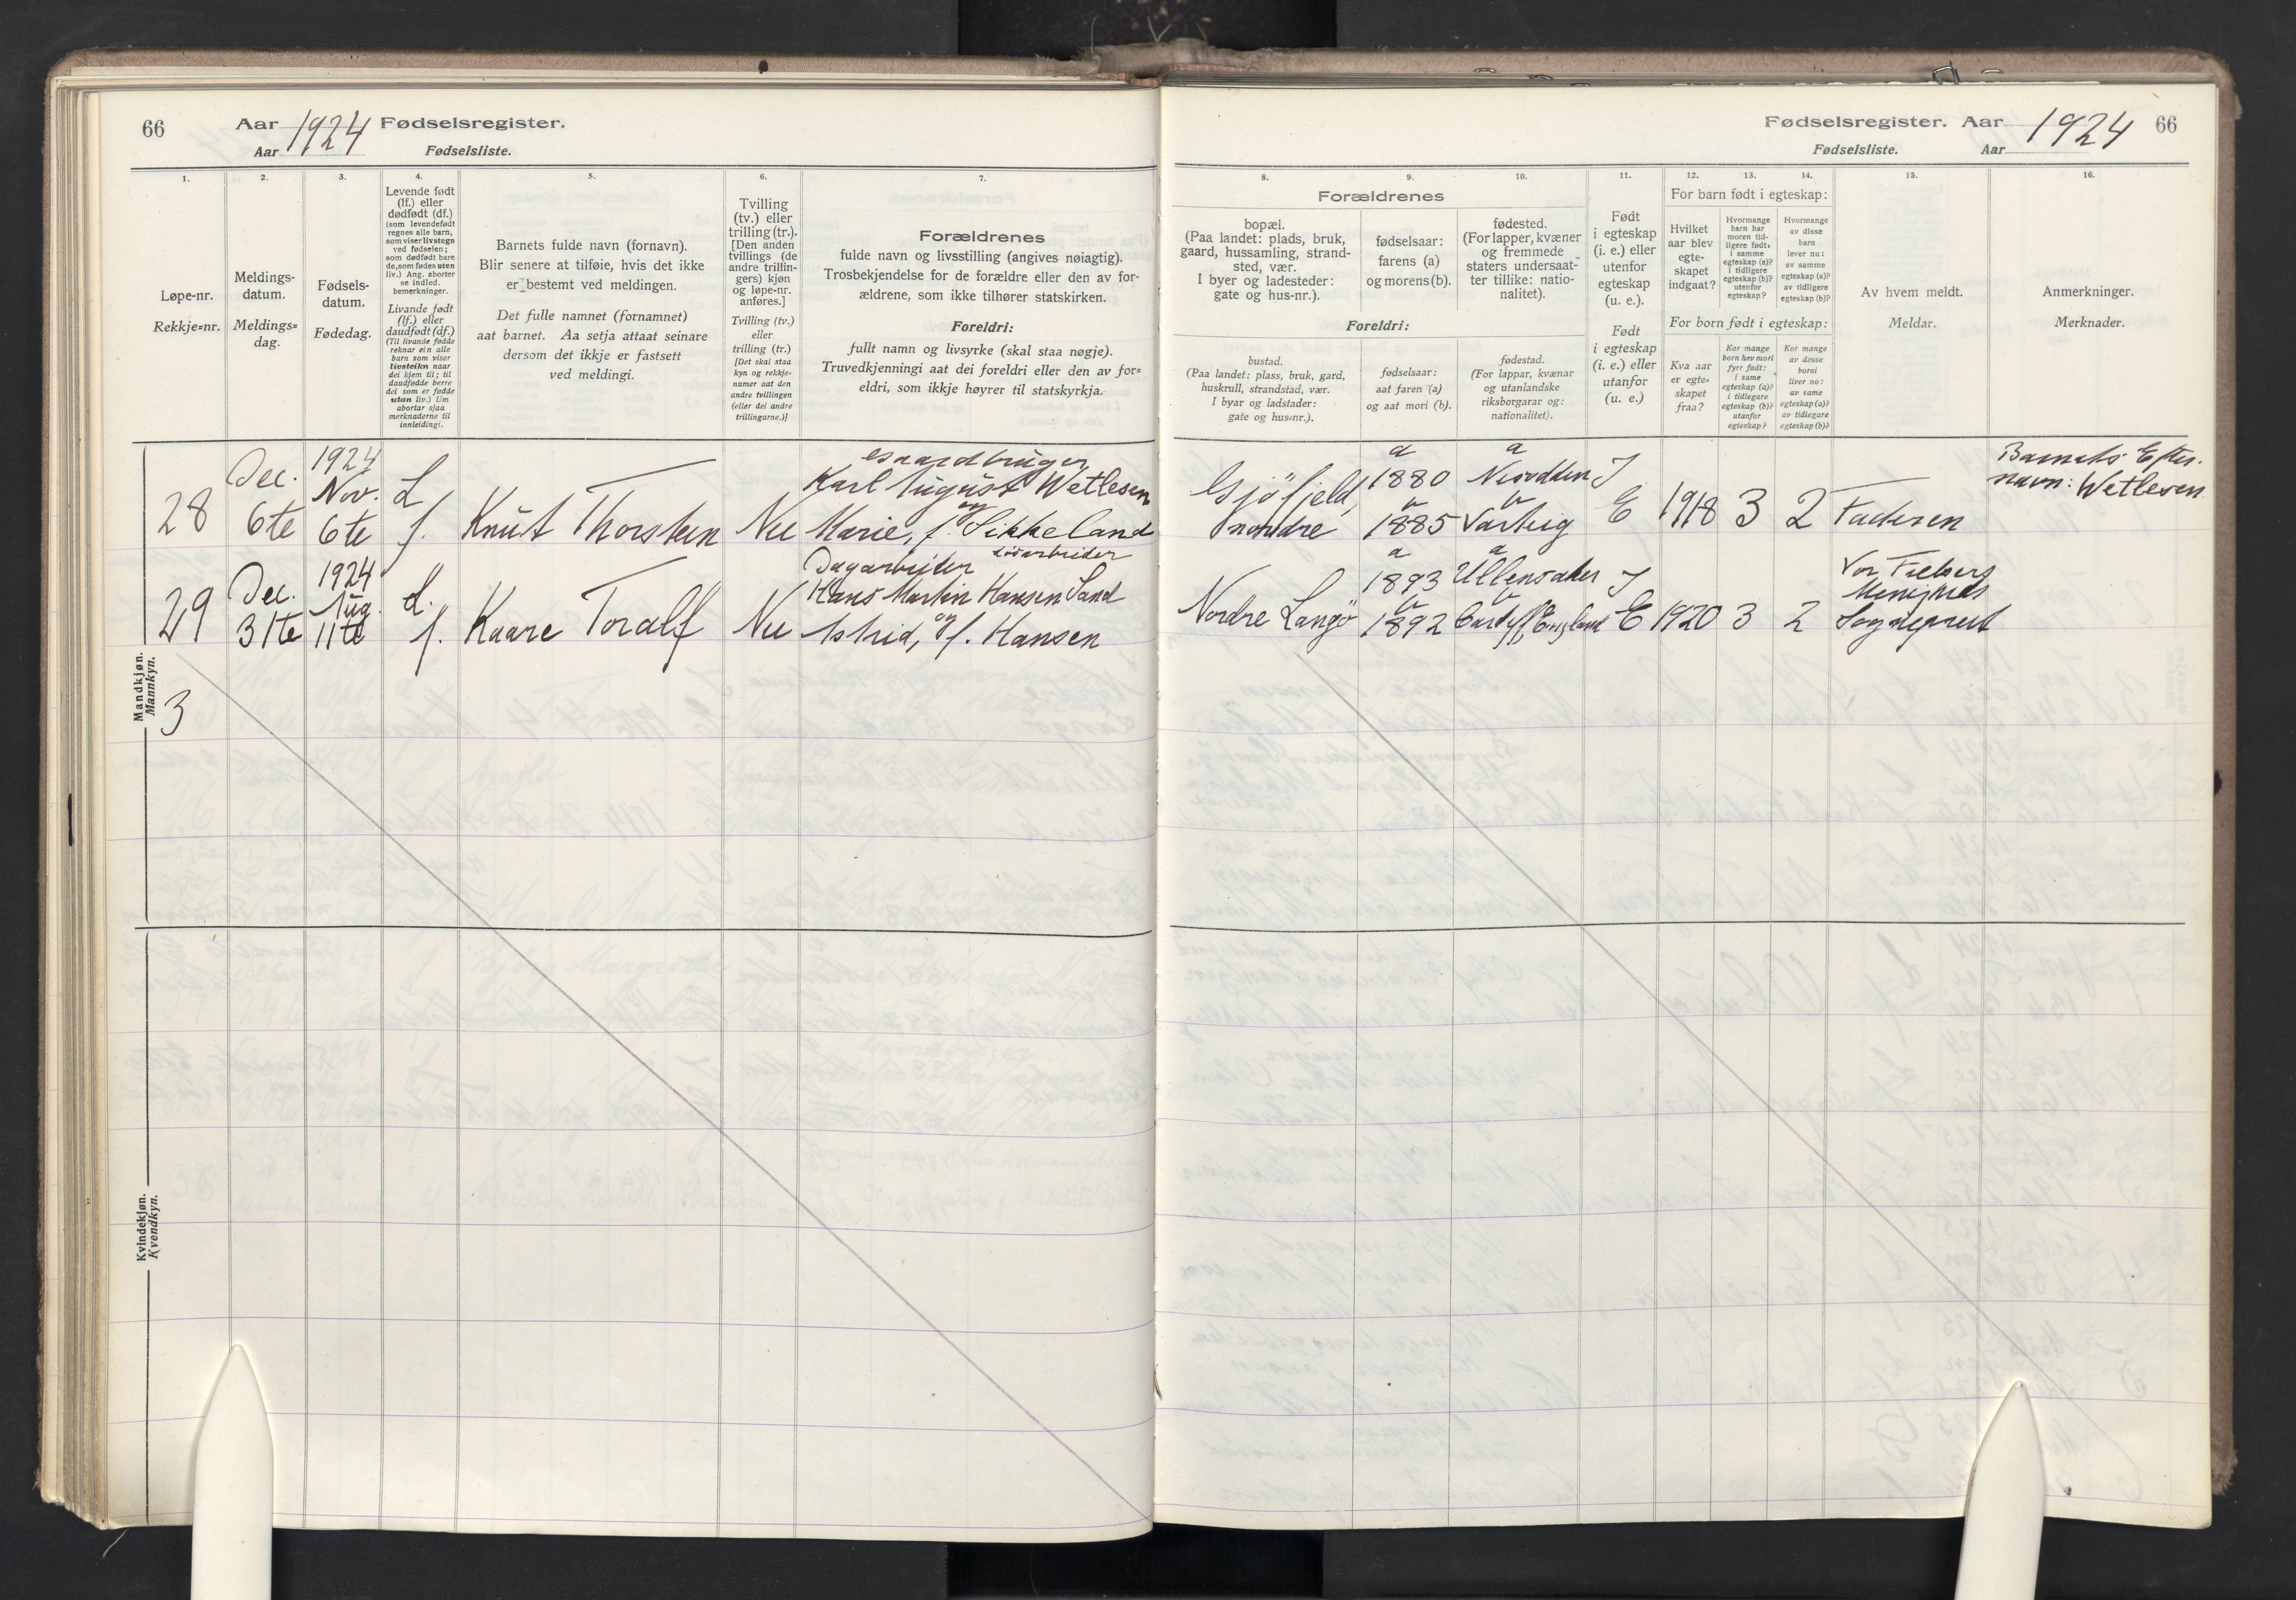 66
Aar 1924 Fødselsregister.
Aar Fødselsliste.
1.
Løpe-nr.
Rekkje=nr.
2.
Meldings-
datum.
Meldings=
dag.
3.
Fødsels-
datum.
Fødedag.
4.
Levende født
(lf.) eller
dødfødt (df.)
(som levendefødt
regnes alle barn,
som viser livstegn
ved fødselen;
som dødfødt bare
de, som fødes uten
liv.) Ang. aborter
se indled.
bemerkninger.
Livande født
(lf.) eller
daudfødt (df.)
(Til livande fødde
reknar ein alle
barn som viser
livsteikn naar
dei kjem til; til
daudfødde berre
dei som er fødde
utan liv.) Um
abortar sjaa
merknaderne til
innleidingi.
5.
Barnets fulde navn (fornavn).
Blir senere at tilføie, hvis det ikke
er bestemt ved meldingen.
Det fulle namnet (fornamnet)
aat barnet. Aa setja attaat seinare
dersom det ikkje er fastsett
ved meldingi.
6.
Tvilling
(tv.) eller
trilling (tr.).
[Den anden
tvillings (de
andre trillin-
gers) kjøn
og løpe-nr.
anføres.]
Tvilling (tv.)
eller
trilling (tr.)
[Det skal staa
kyn og rekkje-
numer aat den
andre tvillingen
(eller dei andre
trillingarne.)]
7.
Forældrenes
fulde navn og livsstilling (angives nøiagtig).
Trosbekjendelse for de forældre eller den av for-
ældrene, som ikke tilhører statskirken.
Foreldri:
fullt namn og livsyrke (skal staa nøgje).
Truvedkjenningi aat dei foreldri eller den av for=
eldri, som ikkje høyrer til statskyrkja.
28
Dec.
6te
1924
Nov.
6te
L
f.
Knut Thorstein
Nei
Gaardbruger
Karl August Wetlesen
og
Marie, f. Sikkeland
29
Dec.
31te
1924
Aug.
11te
L.
f.
Kaare Toralf
Nei
Dagarbeider
Hans Martin Hansen Sand
og
Astrid, f. Hansen
Mandkjøn.
Mannkyn.
3
Kvindekjøn.
Kvendkyn.
Fødselsregister. Aar 1924 66
Fødselsliste. Aar
8.
Forældrenes
bopæl.
(Paa landet: plads, bruk,
gaard, hussamling, strand-
sted, vær.
I byer og ladesteder:
gate og hus-nr.).
Foreldri:
bustad.
(Paa landet: plass, bruk, gard,
huskrull, strandstad, vær.
I byar og ladstader:
gate og hus=nr.).
9.
fødselsaar:
farens (a)
og morens (b).
fødselsaar:
aat faren (a)
og aat mori (b).
10.
fødested.
(For lapper, kvæner
og fremmede
staters undersaat-
ter tillike: natio-
nalitet).
fødestad.
(For lappar, kvænar
og utanlandske
riksborgarar og:
nationalitet).
11.
Født
i egteskap
(i. e.) eller
utenfor
egteskap
(u. e.).
Født
i egteskap
(i. e.) eller
utanfor
(u. e.)
12.
13.
14.
For barn født i egteskap:
Hvilket
aar blev
egte-
skapet
indgaat?
Hvormange
barn har
moren tid-
ligere født:
i samme
egteskap (a)?
i tidligere
egteskap (b)?
utenfor
egteskap?
Hvormange
av disse
barn
lever nu:
av samme
egteskap (a)?
av tidligere
egteskap (b)?
For born født i egteskap:
Kva aar
er egte=
skapet
fraa?
Kor mange
born hev mori
fyrr født:
i same
egteskap (a)?
i tidlegare
egteskap (b)?
utanfor
egteskap?
Kor mange
av desse
borni
liver no:
av same
egteskap (a)?
av tidlegare
egteskap (b)?
15.
Av hvem meldt.
Meldar.
16.
Anmerkninger.
Merknader.
Gjöfjeld,
nordre
a
1880
b
1885
a
Nesodden
b
Varteig
I
E
1918
3
2
Faderen
Barnets Efter-
navn: Wetlesen
Nordre Langö
a
1893
b
1892
a
Ullensaker
b
Cardiff, England
I
E
1920
3
2
Vor Frelsers
Menigheds
Sogneprest